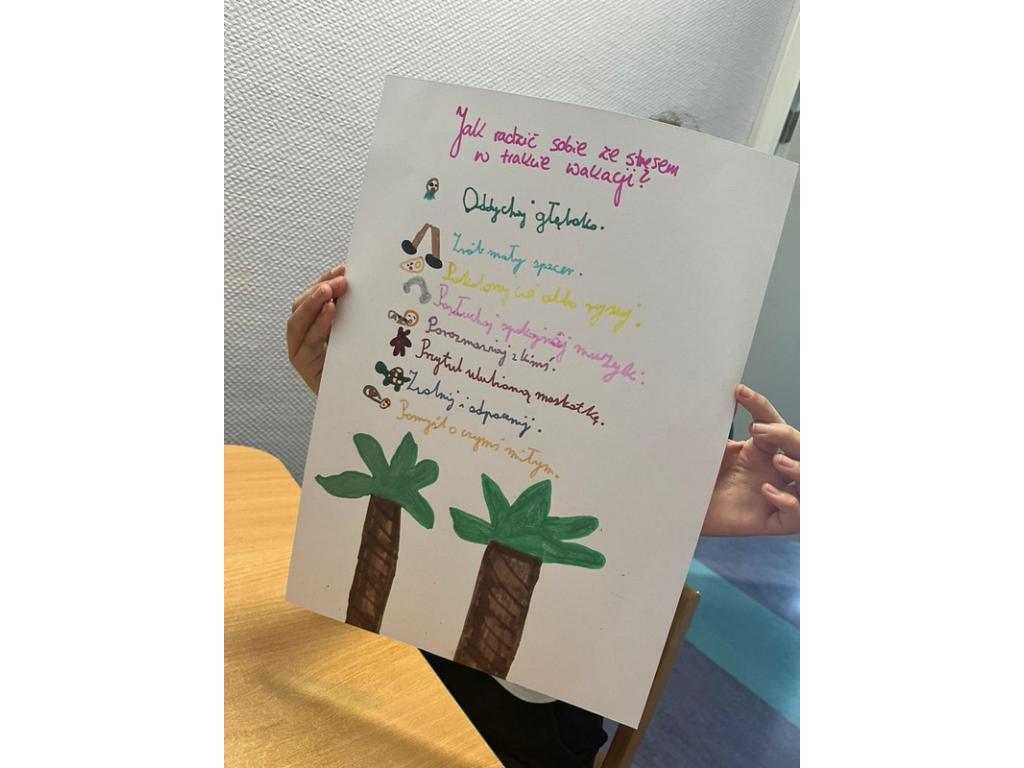 Jak radzić sobie ze stresem
w trakcie wakacji?
Oddychaj głęboko.
Zrób mały spacer.
Pokoloruj coś albo rysuj.
Posłuchaj spokojnej muzyki.
Porozmawiaj z kimś.
Przytul ulubioną maskotkę.
Zwolnij i odpocznij.
Pomyśl o czymś miłym.